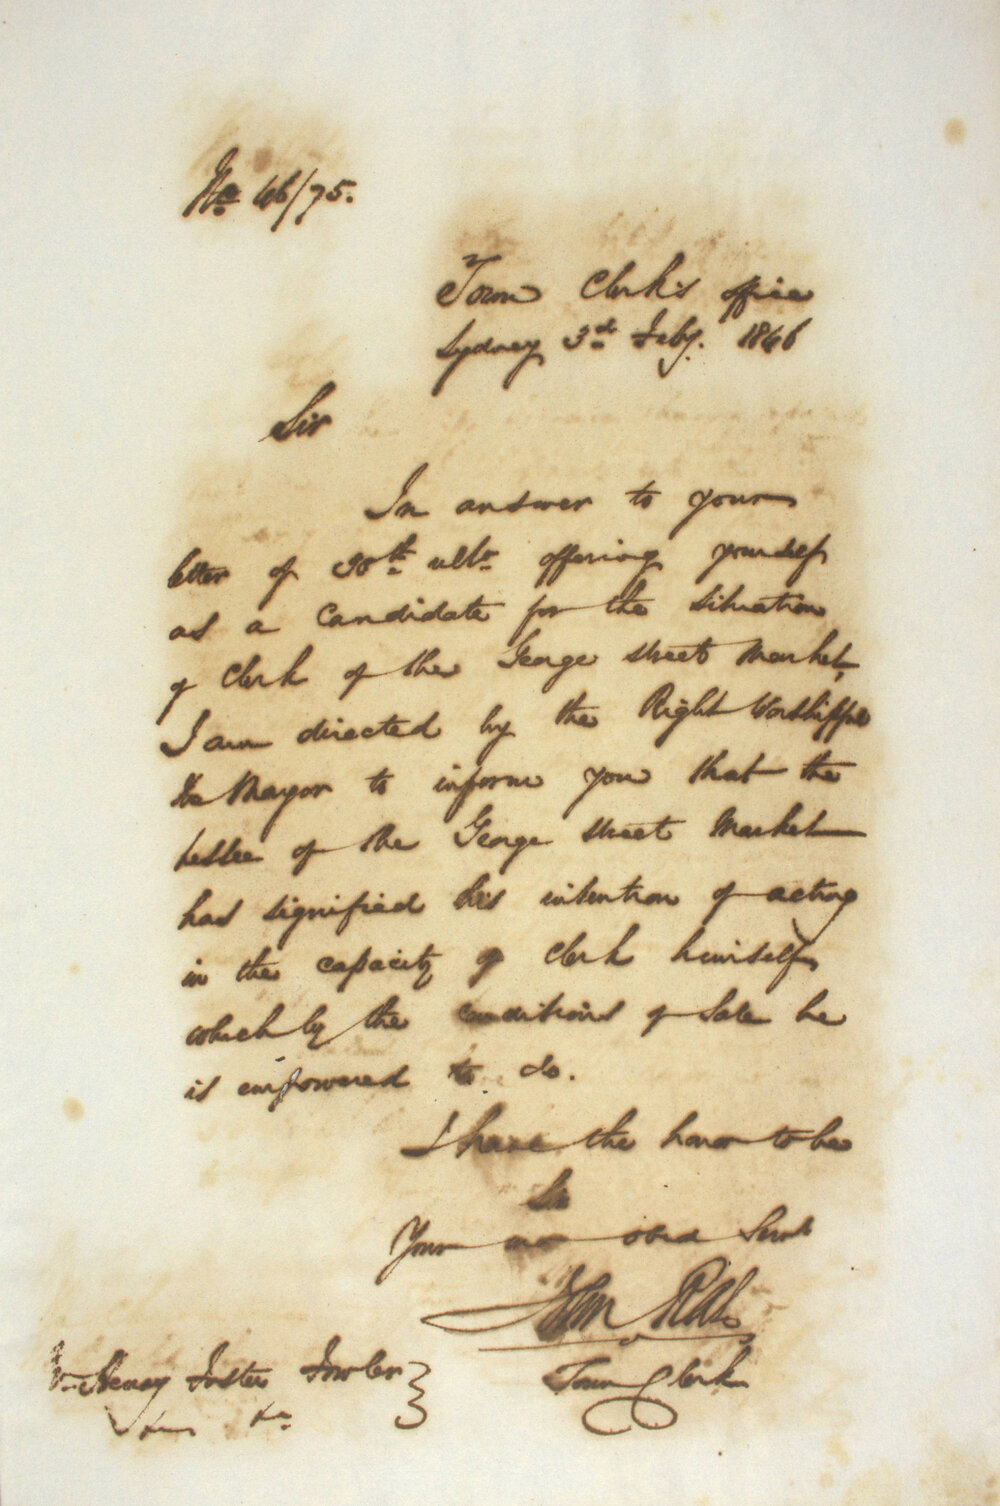 No. 46/75.
Town Clerk's office
Sydney 3rd Feby. 1846
Sir
In answer to your
letter of 30th ulto. offering yourself
as a Candidate for the Situation
of Clerk of the George Street Market,
I am directed by the Right Worshipful
the Mayor to inform you that the
Lessee of the George Street Market
has signified his intention of acting
in the capacity of Clerk himself,
which by the conditions of Sale he
is empowered to do.
I have the honor to be
Sir
Your mo obed Servt
Town Clerk
Mr Henry Foster Fowler